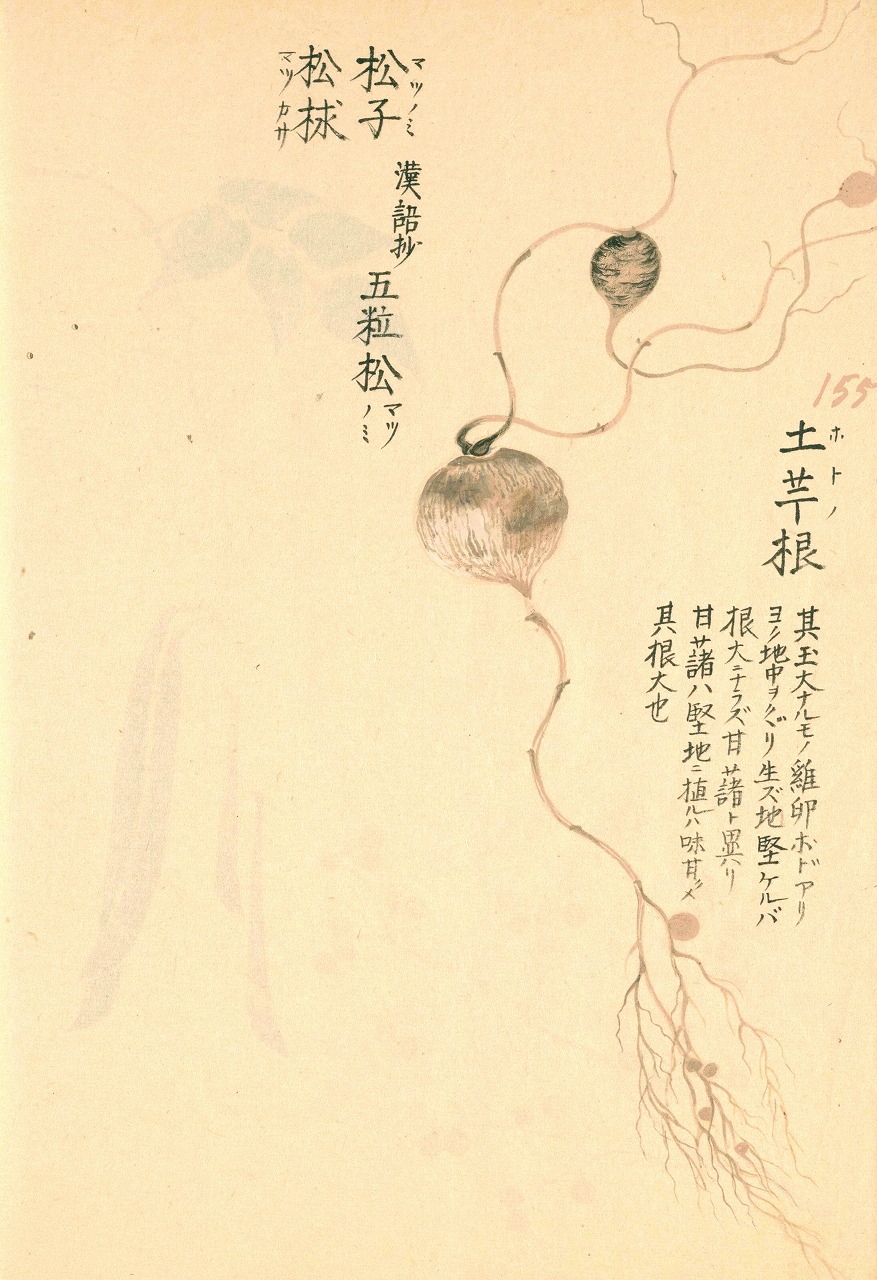 155
土芋根
ホトノ
其玉大ナルモノ雞卵ホドアリ
ヨク地中ヲクグリ生ズ地堅ケルバ
根大ニナラズ甘藷ト異ハリ
甘藷ハ堅地ニ植ルハ味甘クメ
其根大也
松子 漢語抄 五粒松
マツノミ
マツノミ
松梂
マツカサ